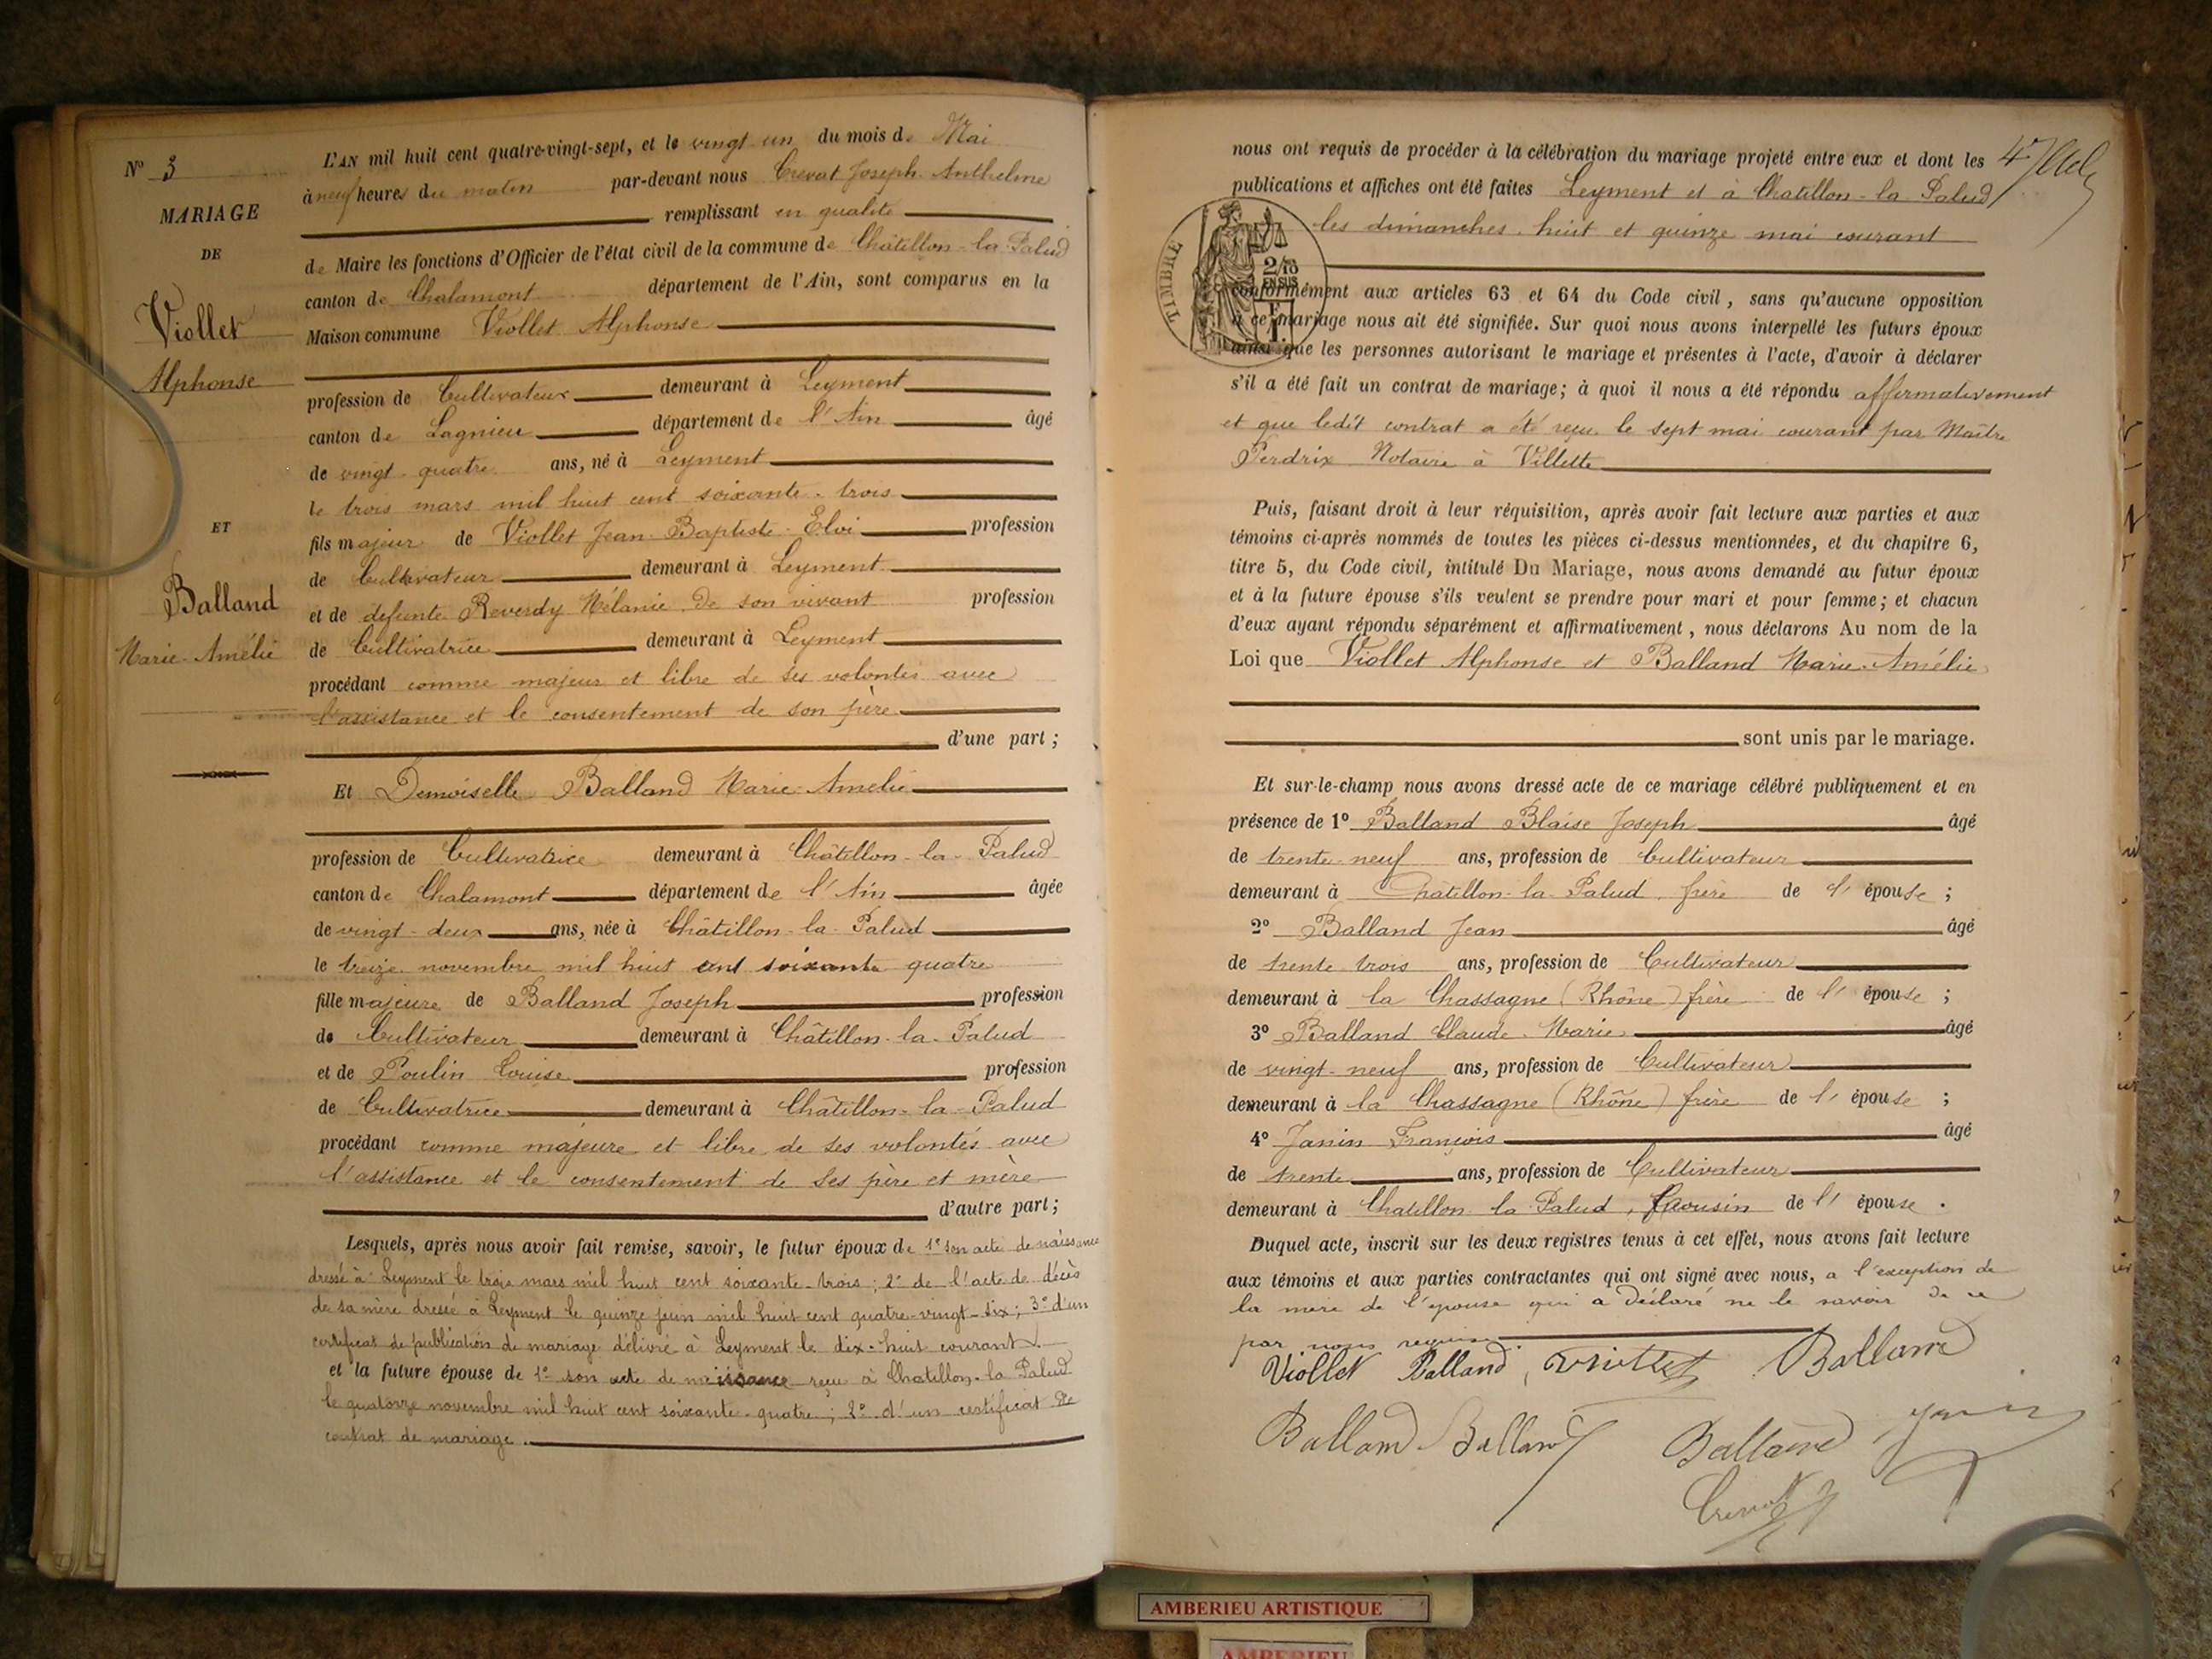 N° 3
MARIAGE
DE
Viollet
Alphonse
ET
Balland
Marie-Amélie
L'AN mil huit cent quatre-vingt-sept, et le vingt un du mois de Mai
à neuf heures du matin par-devant nous Crevat Joseph Anthelme
remplissant en qualité
de Maire les fonctions d'Officier de l'état civil de la commune de Châtillon-la-Palud
canton de Chalamont département de l'Ain, sont comparus en la
Maison commune Viollet Alphonse
profession de Cultivateur demeurant à Leyment
canton de Lagnieu département de l'Ain âgé
de vingt-quatre ans, né à Leyment
le trois mars mil huit cent soixante-trois
fils majeur de Viollet Jean-Baptiste-Eloi profession
de Cultivateur demeurant à Leyment
et de defunte Reverdy Mélanie de son vivant profession
de Cultivatrice demeurant à Leyment
procédant comme majeur et libre de ses volontés avec
l'assistance et le consentement de son père
d'une part ;
Et Demoiselle Balland Marie-Amélie
profession de Cultivatrice demeurant à Châtillon-la-Palud
canton de Chalamont département de l'Ain âgée
de vingt-deux ans, née à Châtillon-la-Palud
le treize novembre mil huit cent soixante quatre
fille majeure de Balland Joseph profession
de Cultivateur demeurant à Châtillon-la-Palud
et de Poulin Louise profession
de Cultivatrice demeurant à Châtillon-la-Palud
procédant comme majeure et libre de ses volontés avec
l'assistance et le consentement de ses père et mère
d'autre part ;
Lesquels, après nous avoir fait remise, savoir, le futur époux de 1° son acte de naissance
dressé à Leyment le trois mars mil huit cent soixante-trois ; 2° de l'acte de décès
de sa mère dressé à Leyment le quinze juin mil huit cent quatre-vingt-six ; 3° d'un
certificat de publication de mariage délivré à Leyment le dix-huit courant
et la future épouse de 1° son acte de naissance reçu à Chatillon-la-Palud
le quatorze novembre mil huit cent soixante-quatre ; 2° d'un certificat de
contrat de mariage.
nous ont requis de procéder à la célébration du mariage projeté entre eux et dont les
publications et affiches ont été faites Leyment et à Chatillon-la-Palud
les dimanches huit et quinze mai courant
TIMBRE
2/10
EN SUS
conformément aux articles 63 et 64 du Code civil, sans qu'aucune opposition
à ce mariage nous ait été signifiée. Sur quoi nous avons interpellé les futurs époux
ainsi que les personnes autorisant le mariage et présentes à l'acte, d'avoir à déclarer
s'il a été fait un contrat de mariage; à quoi il nous a été répondu affirmativement
et que ledit contrat a été reçu le sept mai courant par Maître
Perdrix Notaire à Villette
Puis, faisant droit à leur réquisition, après avoir fait lecture aux parties et aux
témoins ci-après nommés de toutes les pièces ci-dessus mentionnées, et du chapitre 6,
titre 5, du Code civil, intitulé Du Mariage, nous avons demandé au futur époux
et à la future épouse s'ils veulent se prendre pour mari et pour femme; et chacun
d'eux ayant répondu séparément et affirmativement, nous déclarons Au nom de la
Loi que Viollet Alphonse et Balland Marie-Amélie
sont unis par le mariage.
Et sur-le-champ nous avons dressé acte de ce mariage célébré publiquement et en
présence de 1° Balland Blaise Joseph âgé
de trente-neuf ans, profession de Cultivateur
demeurant à Châtillon-la-Palud, frère de l'épouse ;
2° Balland Jean âgé
de trente trois ans, profession de Cultivateur
demeurant à la Chassagne (Rhône) frère de l'épouse ;
3° Balland Claude-Marie âgé
de vingt-neuf ans, profession de Cultivateur
demeurant à la Chassagne (Rhône) frère de l'épouse ;
4° Janin François âgé
de trente ans, profession de Cultivateur
demeurant à Chatillon la Palud, cousin de l'épouse.
Duquel acte, inscrit sur les deux registres tenus à cet effet, nous avons fait lecture
aux témoins et aux parties contractantes qui ont signé avec nous, a l'exception de
la mère de l'épouse qui a déclaré ne le savoir de ce
par nous requise.
Viollet Balland Viollet Balland
Balland Balland Balland Janin
Crevat
AMBERIEU ARTISTIQUE
AMBERIEU